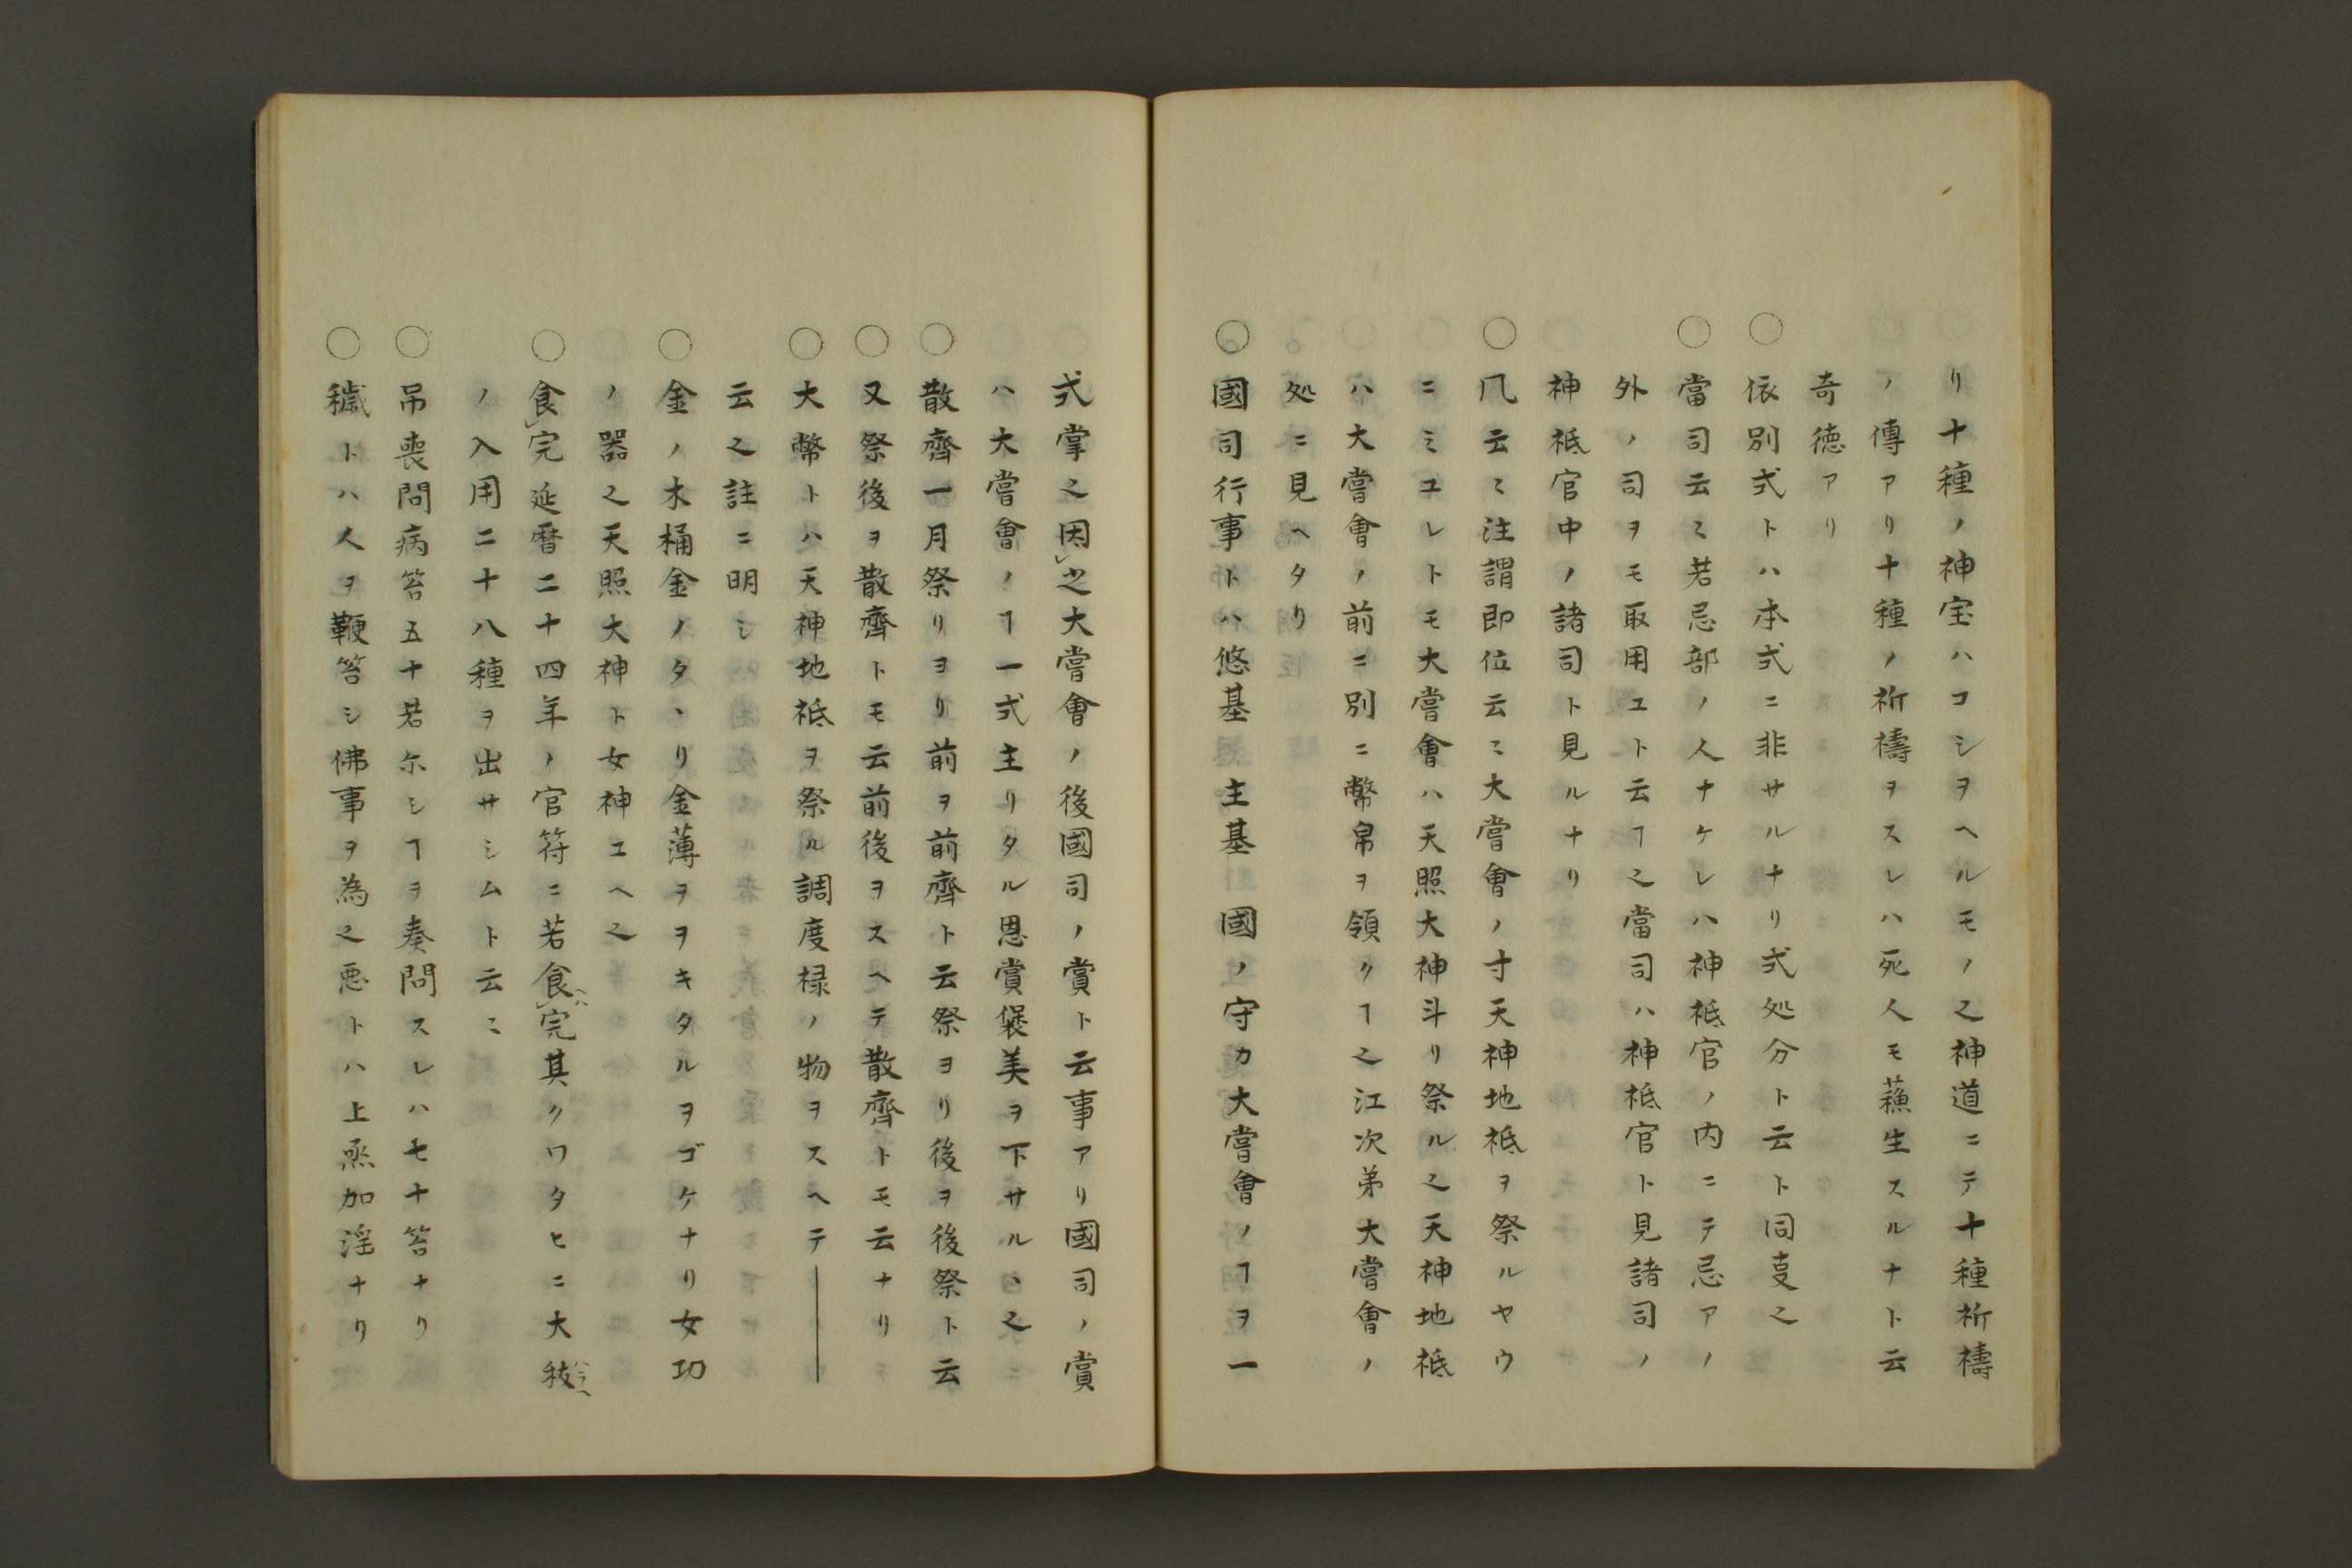 リ十種ノ神宝ハコシヲヘルモノ之神道ニテ十種祈禱
ノ傳アリ十種ノ祈禱ヲスレハ死人モ蘓生スルナト云
奇徳アリ
○依別式トハ本式ニ非サルナリ式処分ト云ト同㕝之
○當司云〻若忌部ノ人ナケレハ神祗官ノ内ニテ忌アノ
外ノ司ヲモ取用ユト云ヿ之當司ハ神祗官ト見諸司ノ
神祗官中ノ諸司ト見ルナリ
○凡云〻注謂即位云〻大嘗會ノ寸天神地祗ヲ祭ルヤウ
ニミユレトモ大嘗會ハ天照大神斗リ祭ル之天神地祗
ハ大嘗會ノ前ニ別ニ幣帛ヲ領クヿ之江次弟大嘗會ノ
処ニ見ヘタリ
○國司行事トハ悠基主基國ノ守カ大嘗會ノヿヲ一
式掌之因之大嘗會ノ後國司ノ賞ト云事アリ國司ノ賞
ハ大嘗會ノヿ一式主リタル恩賞褒美ヲ下サルヽ之
○散齊一月祭リヨリ前ヲ前齊ト云祭ヨリ後ヲ後祭ト云
○又祭後ヲ散齊トモ云前後ヲスヘテ散齊トモ云ナリ
○大幣トハ天神地祗ヲ祭ル調度禄ノ物ヲスヘテ｜
云之註ニ明シ
○金ノ木桶金ノタヽリ金薄ヲヲキタルヲゴケナリ女功
ノ器之天照大神ト女神ユヘ之
○食完延暦二十四年ノ官符ニ若食完其クワタヒニ大秡
ノ入用二十八種ヲ出サシムト云〻
○吊喪問病笞五十若尓シヿヲ奏問スレハ七十笞ナリ
○穢トハ人ヲ鞭笞シ佛事ヲ為之悪トハ上烝加淫ナリ